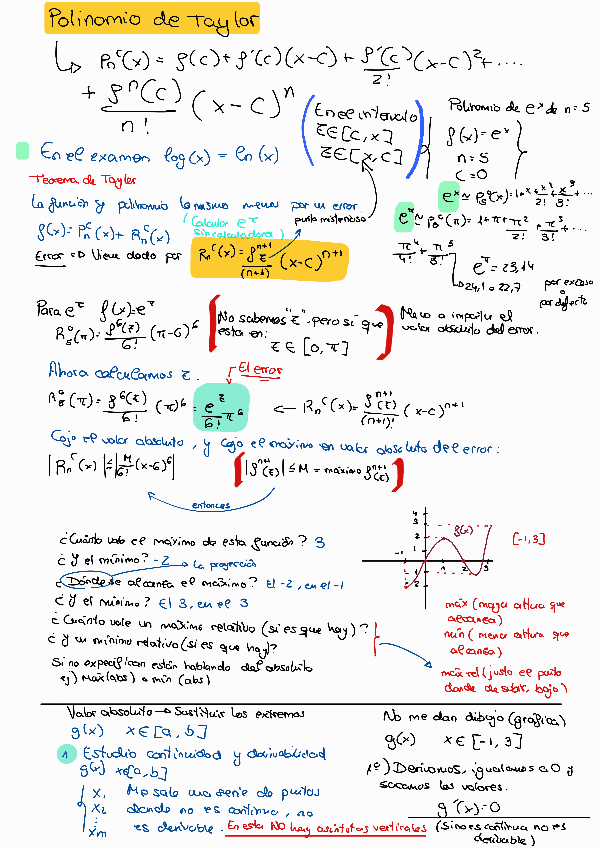 Polinomio de Taylor
↳ Pn^c(x) = f(c) + f'(c)(x-c) + f''(c)/2! (x-c)² + ....
+ f^n(c)/n! (x-c)^n
(En el intervalo
z∈[c,x]
z∈[x,c])
Polinomio de e^x de n=5
f(x)=e^x
n=5
c=0
En el examen log(x) = ln(x)
Teorema de Taylor
La función y polinomio lo mismo menos por un error
punto misterioso
(Calcular e^π sin calculadora)
f(x)= Pn^c(x)+ Rn^c(x)
Error => Viene dado por
Rn^c(x) = f^(n+1)(z)/(n+1) (x-c)^(n+1)
e^π ≃ P5^0(π) = 1+π+π²/2!+π³/3!+...
π⁴/4! + π⁵/5!
e^π = 23,14
24,1 o 22,7
por exceso o por defecto
Para e^π f(x)=e^x
R5^0(π) = f^6(z)/6! (π-0)^6
[No sabemos "z", pero sí que esta en:
z ∈ [0,π]]
Me va a importar el valor absoluto del error.
Ahora calculamos z.
El error
R5^0(π) = f^6(z)/6! (π)^6 = e^z/6! π^6
← Rn^c(x) = f^(n+1)(z)/(n+1)! (x-c)^(n+1)
Cojo el valor absoluto, y cojo el máximo en valor absoluto del error:
[|f^(n+1)(z)| ≤ M = máximo f^(n+1)(z)]
entonces
¿Cuánto vale el máximo de esta función? 3
¿Y el mínimo? -2
La proyección
¿Dónde se alcanza el máximo? El -2, en el -1
¿Y el mínimo? El 3, en el 3
¿Cuánto vale un máximo relativo (si es que hay)?
¿Y un mínimo relativo (si es que hay)?
Si no especifican están hablando del absoluto
ej) Máx(abs) o mín (abs)
f(x)
[-1,3]
máx (mayor altura que alcanza)
mín (menor altura que alcanza)
máx rel (justo el punto donde de subir, bajo)
Valor absoluto → Sustituir los extremos
g(x) x∈[a,b]
1 Estudio continuidad y derivabilidad
g(x) x∈[a,b]
x₁ Me sale una serie de puntos
x₂ donde no es continua, no
xm es derivable. En esta NO hay asíntotas verticales
No me dan dibujo (gráfica)
g(x) x∈[-1,3]
1º) Derivamos, igualamos a 0 y
sacamos los valores.
g'(x)=0
(Si no es continua no es derivable)